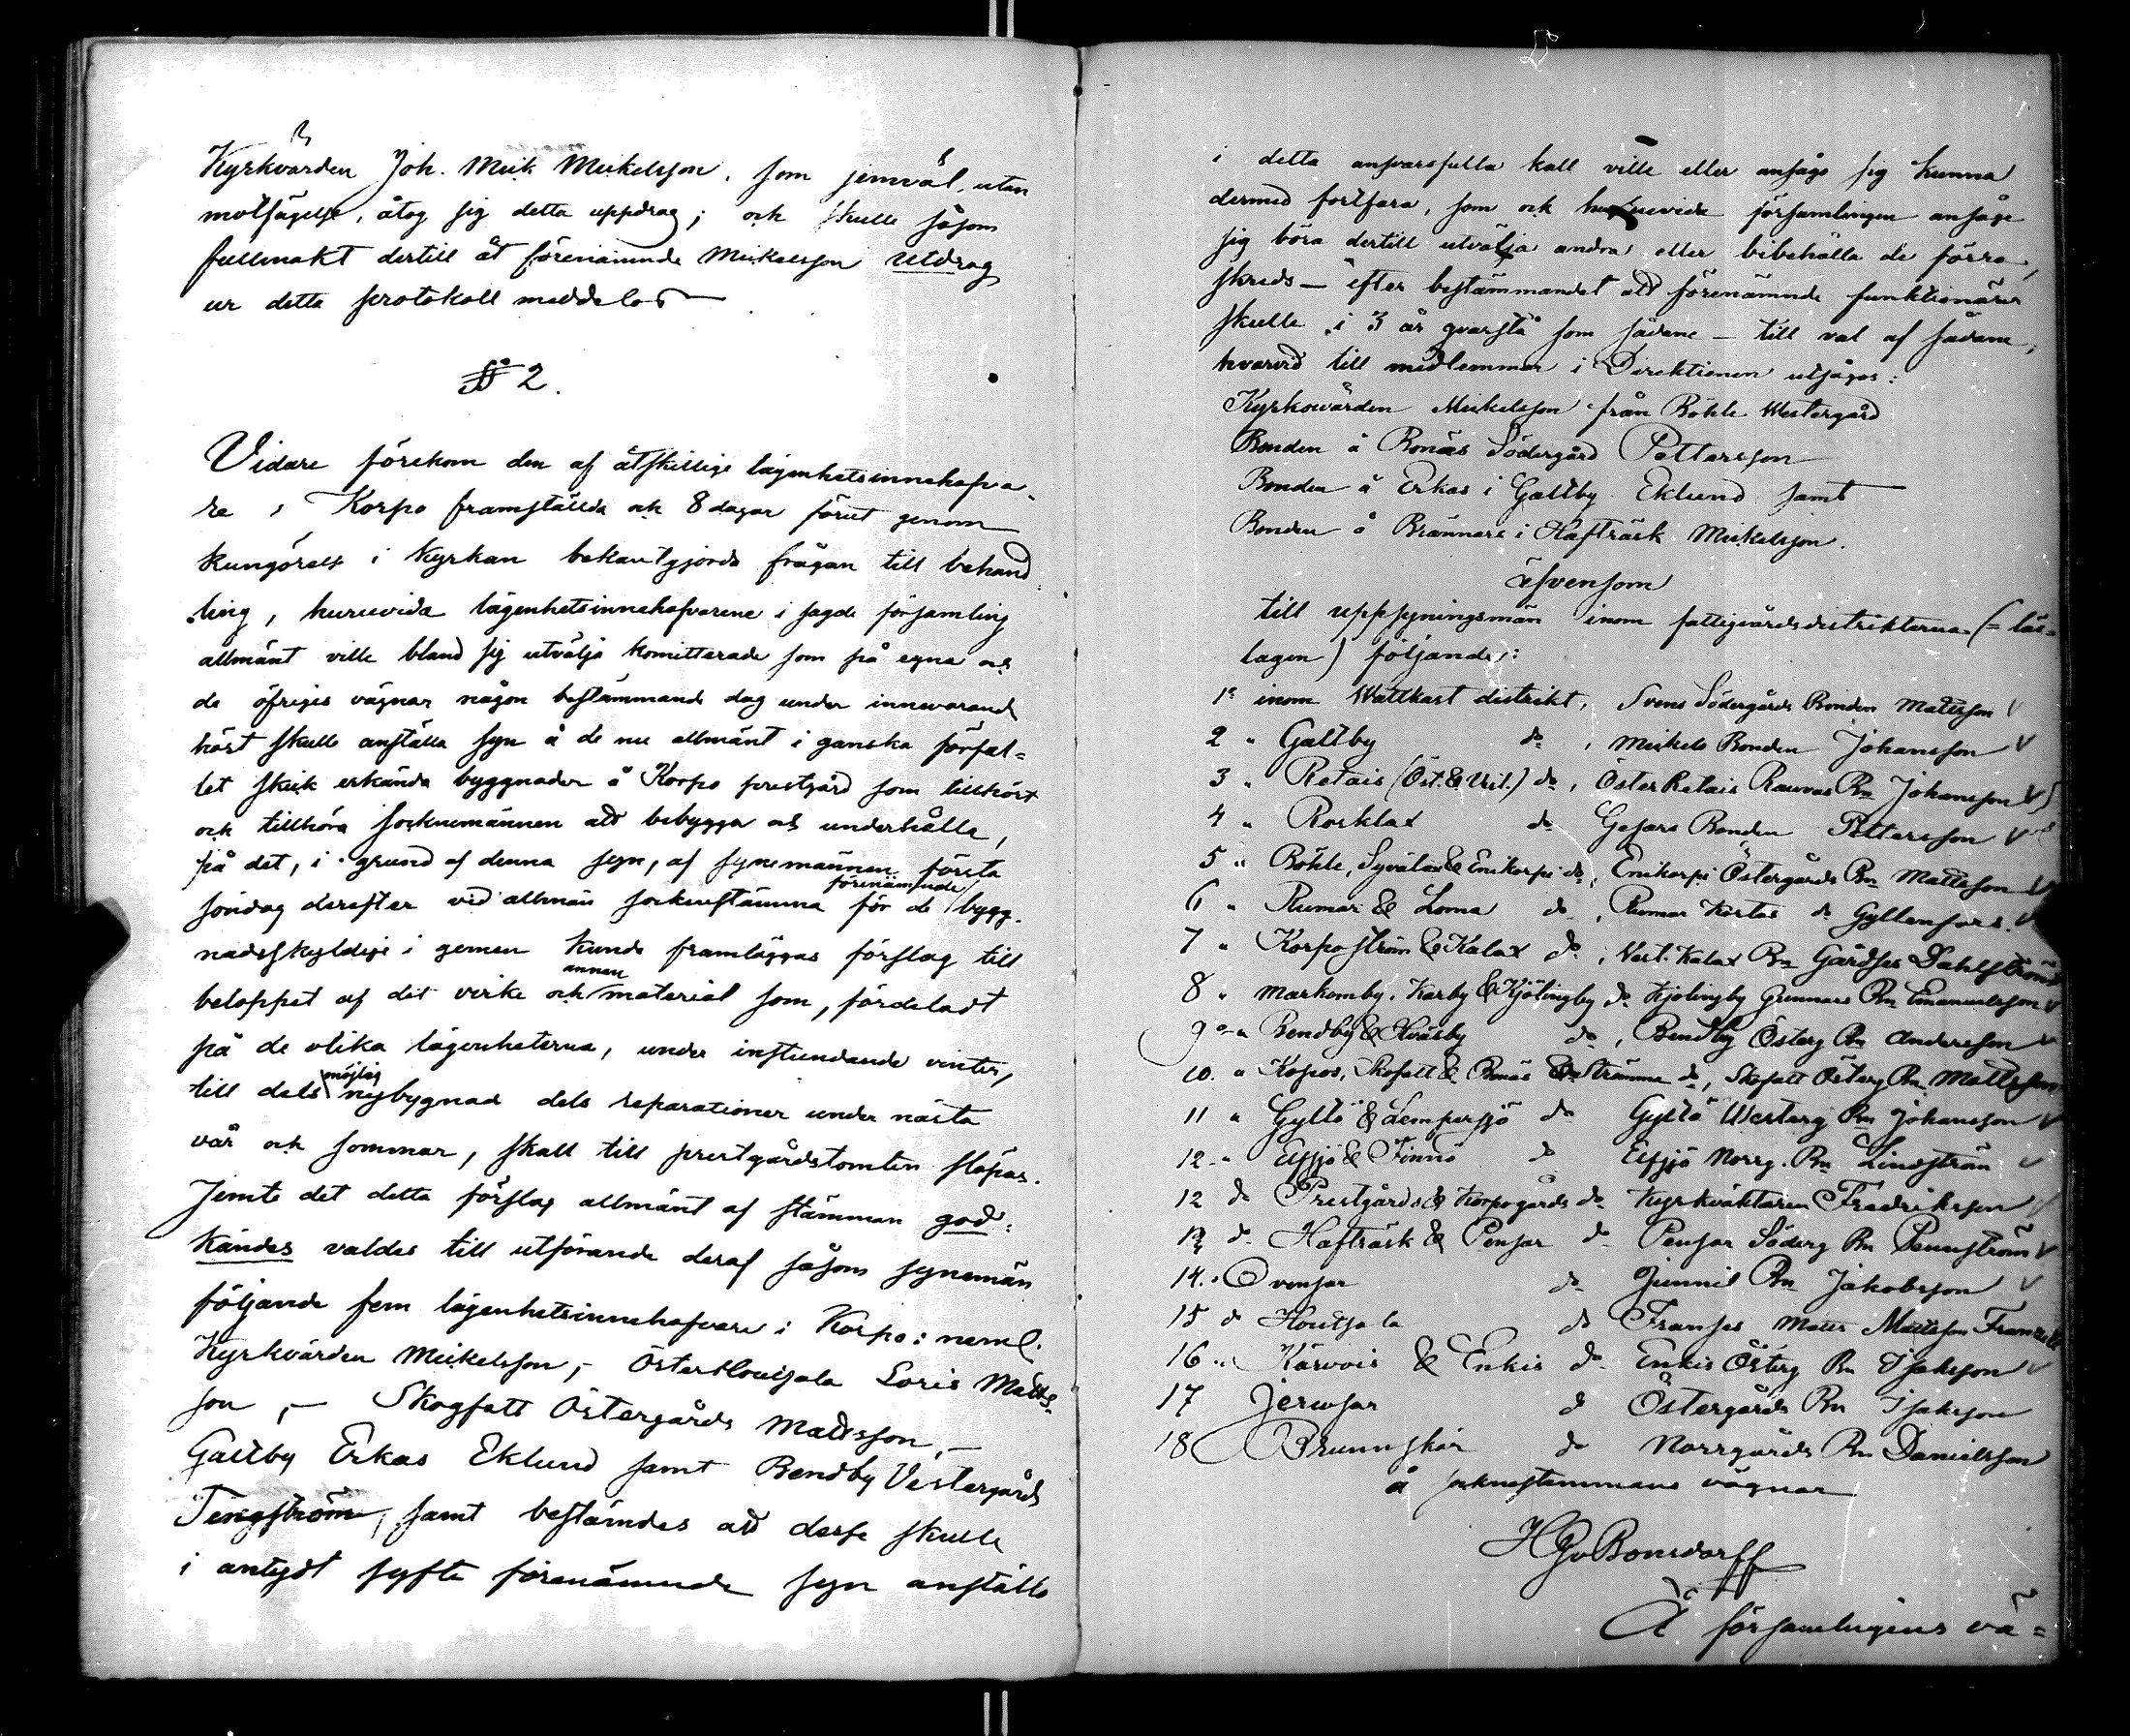 Kyrkvärden Joh. Mick Mickelsson, som jemväl, utan
motsägelse, åtog sig detta uppdrag; och skulle såsom
fullmakt dertill åt förenämnde Mickelsson utdrag
ur detta protokoll meddelas
§ 2.
Vidare förekom den af åtskillige lägenhetsinnehafva-
re i Korpo framställda och 8 dagar förut genom
kungörelse i Kyrkan bekantgjorda frågan till behand
ling, huruvida lägenhetsinnehafvarene i sagde församling
allmänt ville bland sig utvälja komitterade som på egna och
de öfriges vägnar någon bestämmande dag under innevarande
höst skulle anställa syn å de nu allmänt i ganska förfal-
let skick erkända byggnader å Korpo prestgård som tillhört
och tillhöra socknemännen att bebygga och underhålla,
på det, i grund af denna syn, af synemännen första
söndag derefter vid allmän sockenstämma för de förenämnde bygg-
nadsskyldige i gemen kunde framläggas förslag till
beloppet af det virke och annan material som, fördeladt
på de olika lägenheterna, under instundande vinter,
till dels möjlig nybygnad dels reparationer under nästa
vår och sommar, skall till prestgårdstomten släpas.
Jemte det detta förslag allmänt af stämman god-
kändes valdes till utförande deraf såsom synemän
följande fem lägenhetsinnehafvare i Korpo: neml.
Kyrkvärden Mickelsson, - Österhoutsala Loris Matts-
son, - Skogfatt Östergårds Mattsson, -
Galtby Erkas Eklund samt Rendby Vestergårds
Tengström, samt bestämdes att desse skulle
i antydt syfte förenämnde syn anställa
i detta ansvarsfulla kall ville eller ansågo sig kunna
dermed fortfara, som ock huruvida församlingen ansåge
sig böra dertill utvälja andra eller bibehålla de förra,
skreds - efter bestämmandet att förenämnde funktionärer
skulle i 3 år qvarstå som sådane - till val af sådane,
hvarvid till medlemmar i Direktionen utsågos:
Kyrkovärden Mickelsson från Böhle Westergård
Bonden å Bonäs Södergård Pettersson
Bonden å Erkas i Galtby Eklund samt
Bonden å Brännars i Hafträsk Mickelsson.
äfvensom
till uppsyningsmän inom fattigvårdsdistrikterna (= läs-
lagen) följande:
1o inom Wattkast distrikt, Svens Södergårds Bonden Mattsson
2 " Galtby do, Mickels Bonden Johansson
3 " Retais (Öst. & Vest.) do, Öster Retais Rauvas Bn Johansson
4 " Rosklax do Gesars Bonden Pettersson
5 " Böhle, Syvälax & Enikorpi do, Enikorpi Östergårds Bn Mattsson
6 " Rumar & Loma do, Rumar Kortas do Gyllenfors.
7 " Korpoström & Kalax do, Vest. Kalax Bn Gårdses Dahlström
8 " Markomby, Karby & Kjölingby do Kjölingby Gunnars Bn Emanuelsson
9o " Rendby & Hväsby do, Rendby Österg Bn Andersson
10. " Kopos, Skofatt & Bonäs & Strömma do, Skofatt Österg Bn Mattsson
11 " Gyltö & Lempersjö do Gyltö Westerg Bn Johansson
12 " Elfsjö & Finnö do Elfsjö Norrg. Bn Lindström
12 do Prestgårds & Korpogårds do Kyrkväktaren Fredriksson
13 do Hafträsk & Pensar do Pensar Söderg Bn Pennström
14. " Ovensor do Gunnil Bn Jakobsson
15 do Houtsala do Franses Matts Mattsson Franzell
16 " Kärvois & Enkis do Enkis Österg Bn Isaksson
17 Jermsar do Östergårds Bn Isaksson
18 Brunnskär do Norrgårds Bn Danielsson
å socknestämmans vägnar
HGvBonsdorff
Å församlingens vä-